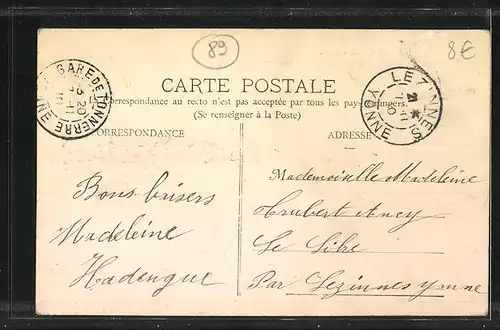 89
8€
CARTE POSTALE
correspondance au recto n'est pas acceptée par tous les pays étrangers.
(Se renseigner à la Poste)
CORRESPONDANCE
ADRESSE
GARE DE TONNERRE
20
LEZINNES
21
YONNE
Bons baisers
Madeleine
Hadengue
Mademoiselle Madeleine
Ancy
Le
Par Lezinnes Yonne